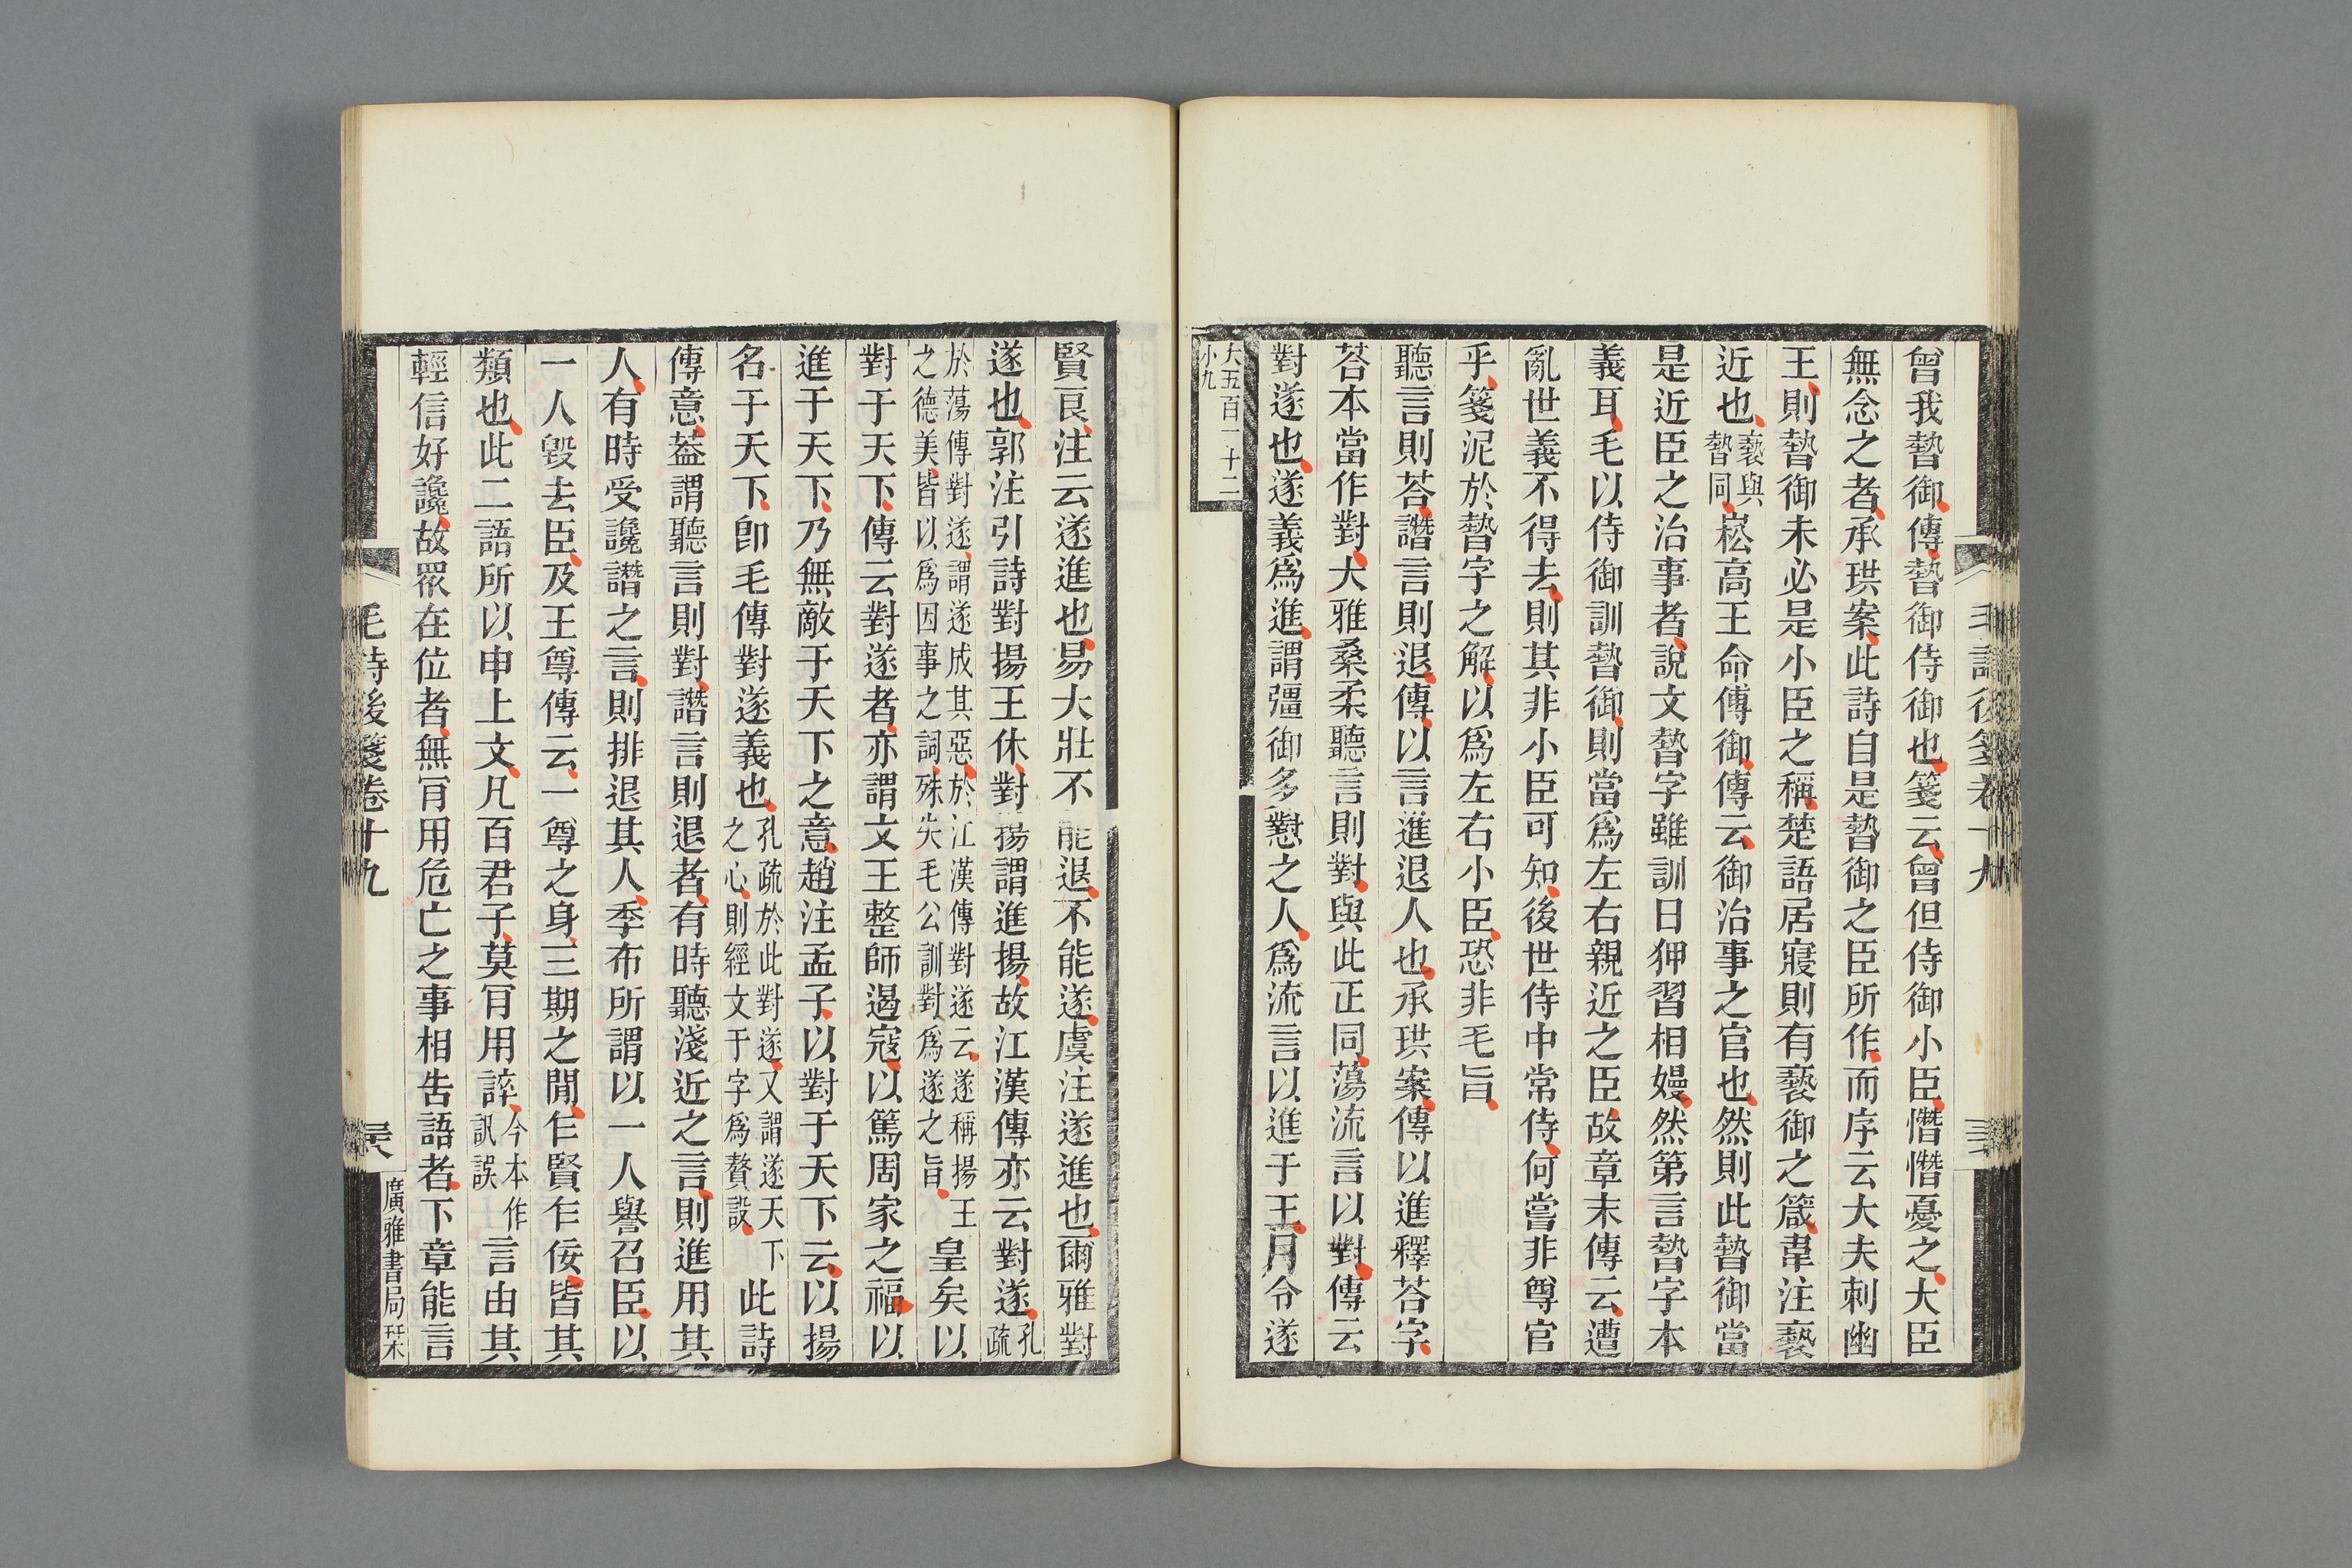 曾我暬御傳暬御侍御也箋云曾但侍御小臣憯憯憂之大臣
無念之者承珙案此詩自是暬御之臣所作而序云大夫刺幽
王則暬御未必是小臣之稱楚語居寢則有褻御之箴韋注褻
近也褻與暬同崧高王命傅御傳云御治事之官也然則此暬御當
是近臣之治事者說文暬字雖訓日狎習相嫚然第言暬字本
義耳毛以侍御訓暬御則當爲左右親近之臣故章末傳云遭
亂世義不得去則其非小臣可知後世侍中常侍何嘗非尊官
乎箋泥於暬字之解以爲左右小臣恐非毛旨
聽言則荅譖言則退傳以言進退人也承珙案傳以進釋荅字
荅本當作對大雅桑柔聽言則對與此正同蕩流言以對傳云
對遂也遂義爲進謂彊御多懟之人爲流言以進于王月令遂
大五百一十二
小九
賢良注云遂進也易大壯不能退不能遂虞注遂進也爾雅對
遂也郭注引詩對揚王休對揚謂進揚故江漢傳亦云對遂孔疏
於蕩傳對遂謂遂成其惡於江漢傳對遂云遂稱揚王
之德美皆以爲因事之詞殊失毛公訓對爲遂之旨皇矣以
對于天下傳云對遂者亦謂文王整師遏寇以篤周家之福以
進于天下乃無敵于天下之意趙注孟子以對于天下云以揚
名于天下卽毛傳對遂義也孔疏於此對遂又謂遂天下之心則經文于字爲贅設此詩
傳意葢謂聽言則對譖言則退者有時聽淺近之言則進用其
人有時受讒譖之言則排退其人季布所謂以一人譽召臣以
一人毀去臣及王尊傳云一尊之身三期之閒乍賢乍佞皆其
類也此二語所以申上文凡百君子莫肎用誶今本作訊誤言由其
輕信好讒故眾在位者無肎用危亡之事相吿語者下章能言
毛詩後箋卷十九
廣雅書局栞